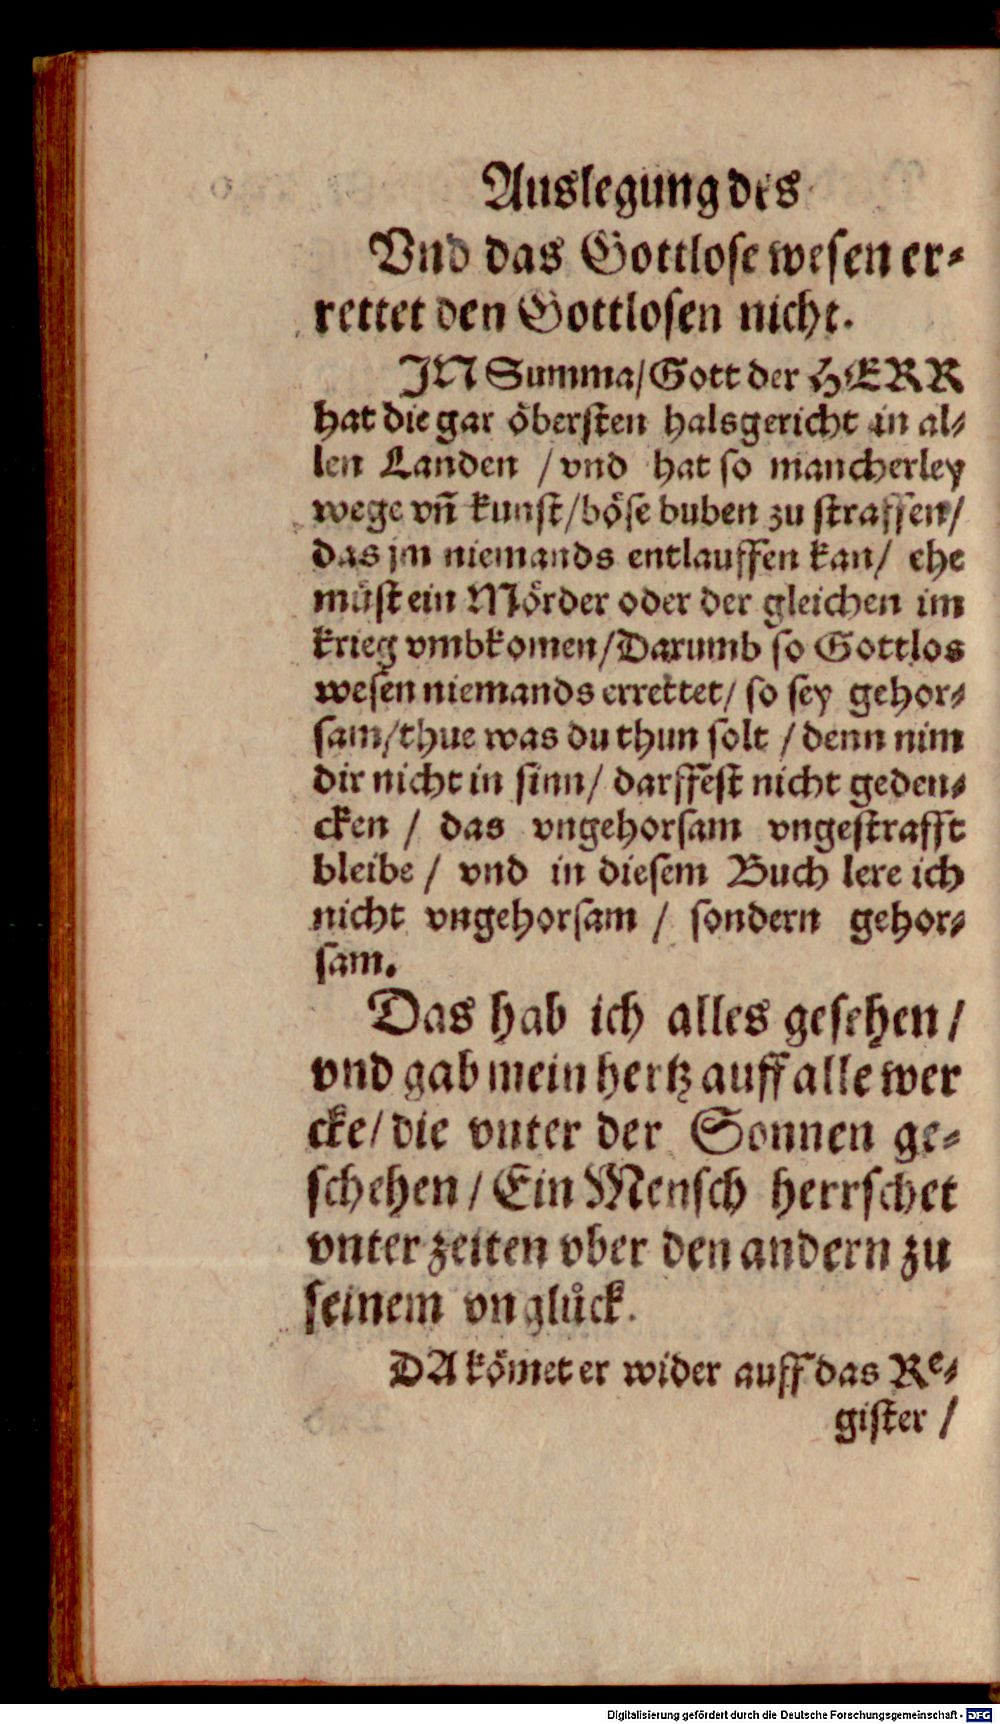 Auslegung des
Vnd das Gottlose wesen er-
rettet den Gottlosen nicht.
JN Summa/Gott der HERR
hat die gar öbersten halsgericht in al-
len Landen /vnd hat so mancherley
wege vñ kunst/böse buben zu straffen/
das jm niemands entlauffen kan/ ehe
müst ein Mörder oder der gleichen im
krieg vmbkomen/Darumb so Gottlos
wesen niemands errettet/ so sey gehor-
sam/thue was du thun solt / denn nim
dir nicht in sinn/ darffest nicht geden-
cken / das vngehorsam vngestrafft
bleibe / vnd in diesem Buch lere ich
nicht vngehorsam / sondern gehor-
sam.
Das hab ich alles gesehen/
vnd gab mein hertz auff alle wer
cke/die vnter der Sonnen ge-
schehen/Ein Mensch herrschet
vnter zeiten vber den andern zu
seinem vnglůck.
DA kömet er wider auff das Re-
gister /
Digitalisierung gefördert durch die Deutsche Forschungsgemeinschaft - DFG